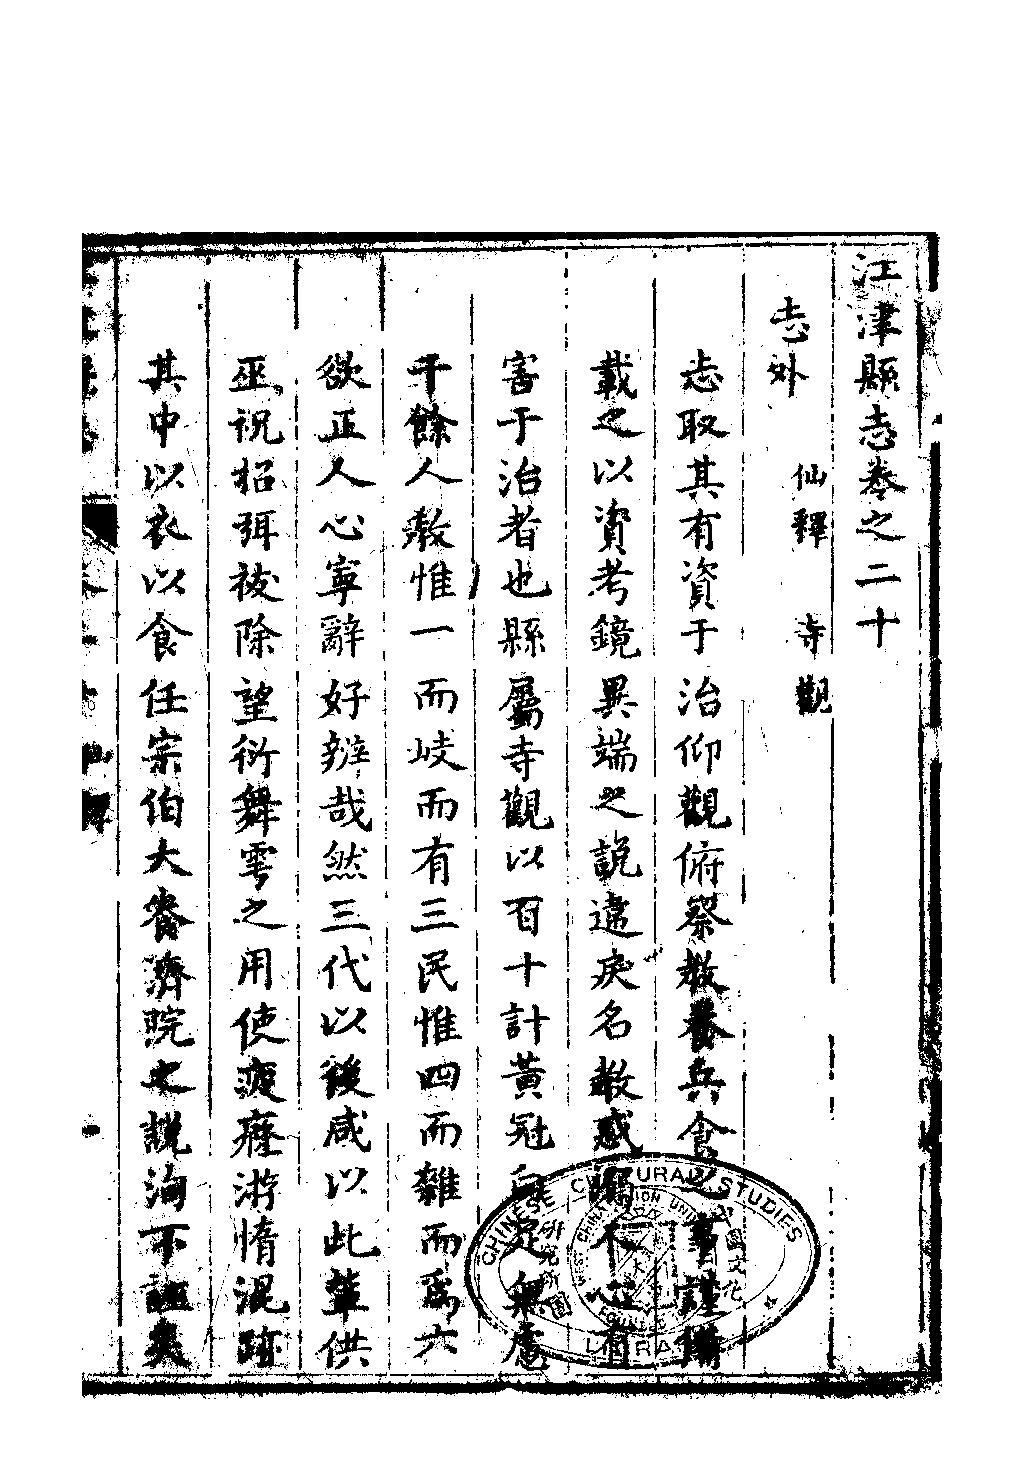 江津縣志卷之二十
志外
仙釋　寺觀
志取其有資于治仰觀俯察教養兵食之事謹備
載之以資考鏡異端之說違戾名教惑 不心有
害于治者也縣屬寺觀以百十計黃冠白足無慮
千餘人教惟一而歧而有三民惟四而雜而為六
欲正人心寧辭好辨哉然三代以後咸以此輩供
巫祝招弭祓除望衍舞雩之用使疲癃游惰混跡
其中以衣以食任宗伯大 濟院之說洵不誣矣
CHINESE CULTURAL STUDIES
LIBRARY